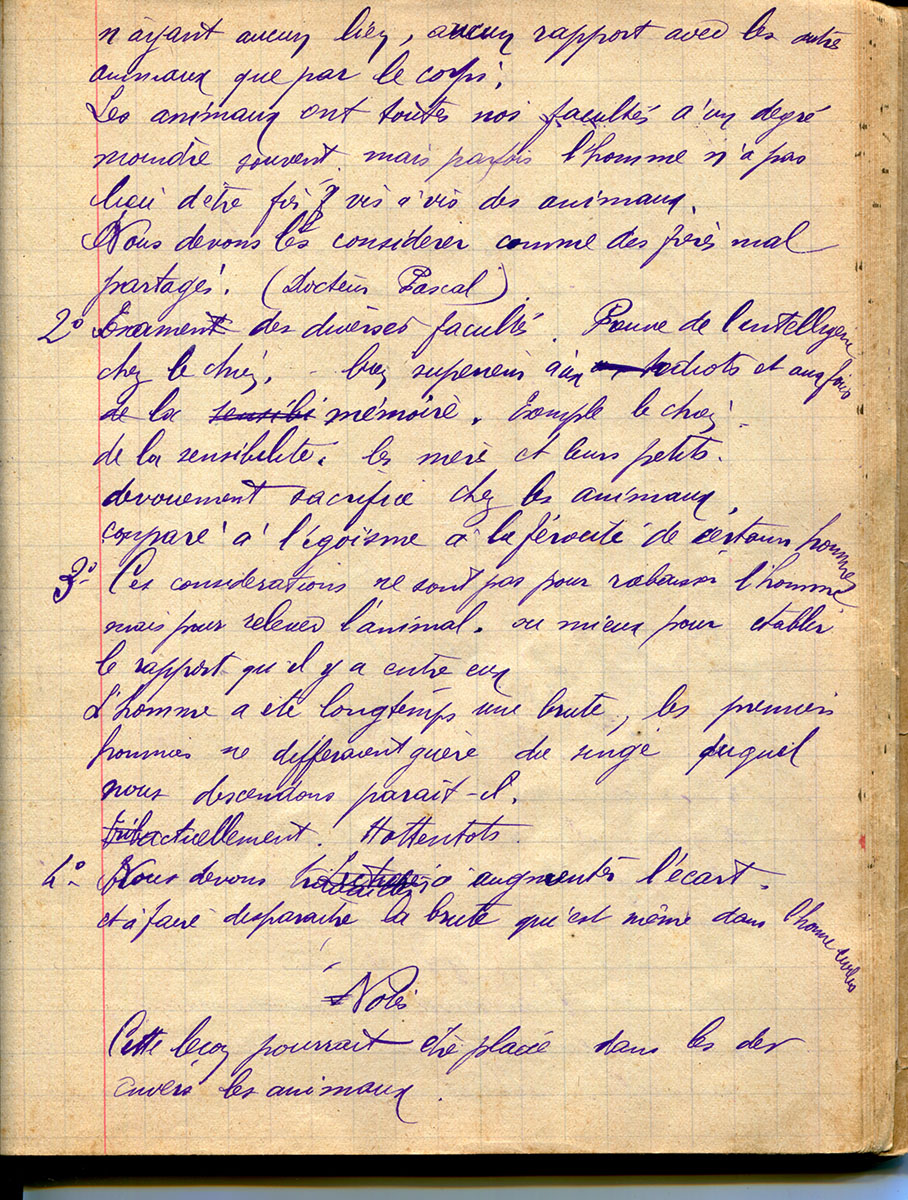 n'ayant aucun lien, aucun rapport avec les autre
animaux que par le corps.
Les animaux ont toutes nos facultés à un degré
moindre souvent mais parfois l'homme n'a pas
lieu d'être fier vis à vis des animaux.
Nous devons les considerer comme des frères mal
partagés. (Docteur Pascal)
2° Examen des diverses facultés. Preuve de l'intelligence
chez le chien, - bien superieur aux idiots et aux fous
de la sensibi mémoire. Exemple le chien
de la sensibilité. les mère et leurs petits.
devouement sacrifice chez les animaux
comparé à l'égoïsme à la férocité de certains hommes
3°- Ces considerations ne sont pas pour rabaisser l'homme
mais pour relever l'animal. ou mieux pour etablir
le rapport qu'il y a entre eux
L'homme a été longtemps une brute, les premiers
hommes ne differaient guère du singe duquel
nous descendons parait-il.
actuellement. Hottentots.
4°- Nous devons travailler à augmenter l'écart.
et à faire disparaitre la brute qu'est même dans l'homme civilisé
Notes
Cette leçon pourrait être placée dans les dev
envers les animaux.